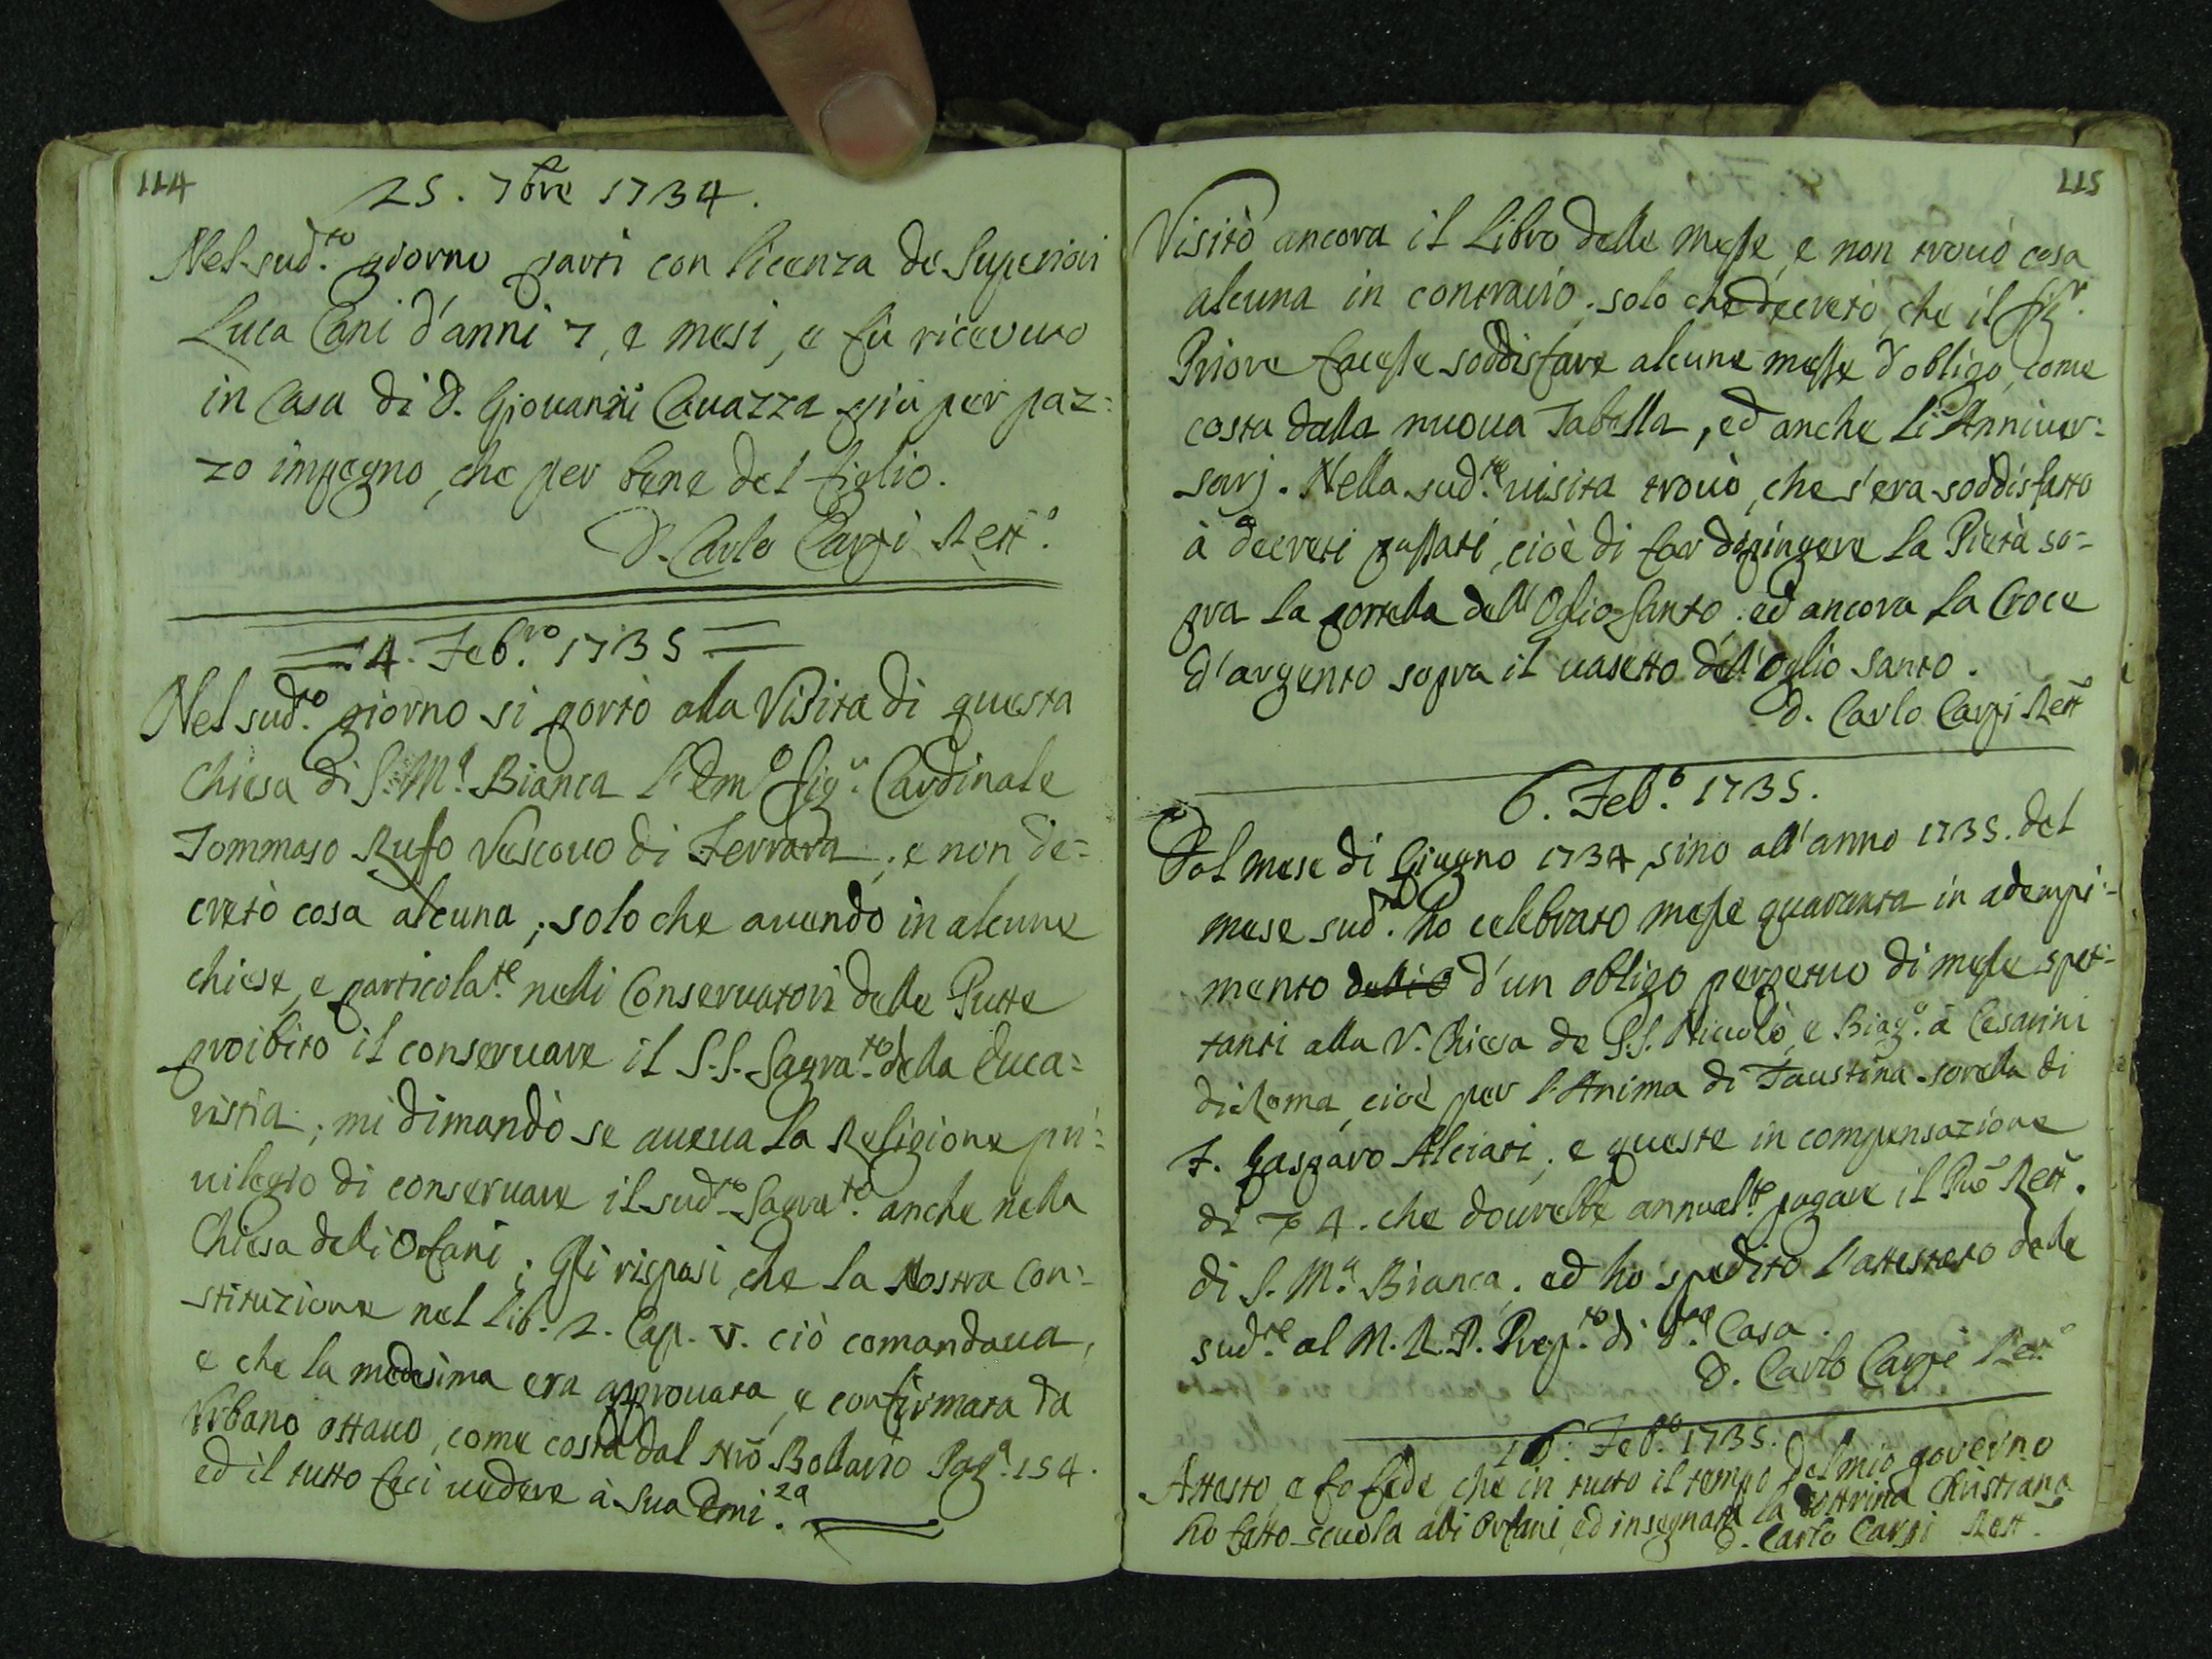 114
25. 7bre 1734.
Nel sud.to giorno partì con licenza de Superiori
Luca Cani d'anni 7, e mesi, e fù ricevuto
in Casa di D. Giovanni Cavazza più per paz=
zo impegno, che per bene del figlio.
D. Carlo Carpi Rett.o
14. Feb.ro 1735
Nel sud.to giorno si portò alla Visita di questa
Chiesa di S. M.a Bianca l'Em.o Sig.r Cardinale
Tommaso Rufo Vescovo di Ferrara; e non de=
cretò cosa alcuna; solo che avendo in alcune
chiese, e particola.te nelli Conservatorj delle Putte
proibito il conservare il S.S. Sagra.to della Euca=
ristia; mi dimandò se aveva la Religione pri=
vilegio di conservare il sud.to Sagra.to anche nella
Chiesa delli Orfani; Gli risposi, che la Nostra Con=
stituzione nel Lib. 2. Cap. V. ciò comandava,
e che la medesima era approvata, e confirmata da
Urbano ottavo, come costa dal Nrō Bollario Pag.a 154.
ed il tutto feci vedere à Sua Emi.za
115
Visitò ancora il Libro delle messe, e non trovò cosa
alcuna in contrario; solo che decretò, che il Sig.r
Priore facesse soddisfare alcune messe d'obligo, come
costa dalla nuova Tabella, ed anche li Anniver=
sarj. Nella sud.ta visita trovò, che s'era soddisfatto
à decreti passati, cioè di far dipingere la Pietà so=
pra la portella dell'Oglio Santo; ed ancora la Croce
d'argento sopra il vasetto dell'oglio santo.
D. Carlo Carpi Rett.o
6. Feb.o 1735.
Dal mese di Giugno 1734 sino all'anno 1735. del
mese sud.to ho celebrato messe quaranta in adempi=
mento delli o d'un obligo perpetuo di messe spet=
tanti alla V. Chiesa de S.S. Niccolò, e Biag.o à Cesarini
di Roma, cioè per l'Anima di Faustina sorella di
F. Gasparo Alciati; e queste in compensazione
di 4. che dovrebbe annual.te pagare il Prō Rett.
di S. M.a Bianca; ed ho spedito l'attestato delle
sud.te al M. R. P. Prep.to di d.ta Casa.
D. Carlo Carpi Ret.o
16. Feb.o 1735.
Attesto, e fo fede, che in tutto il tempo del mio governo
ho fatto scuola alli Orfani, ed insegnata la Dottrina Christiana
D. Carlo Carpi Rett.o